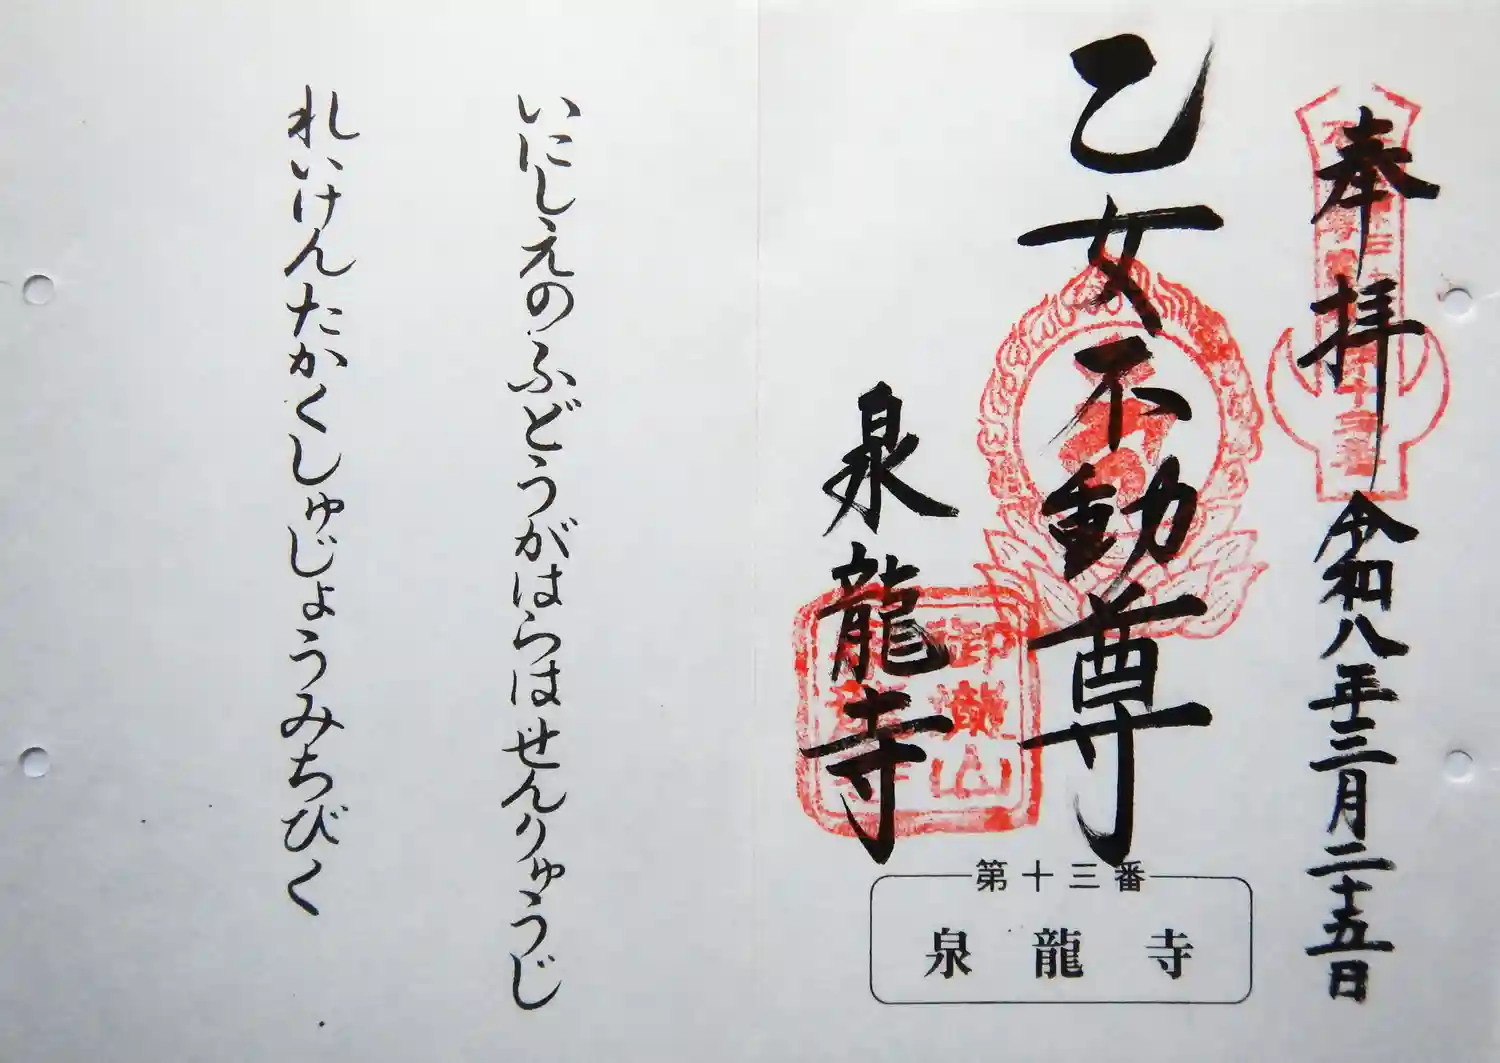 奉拝
令和八年三月二十五日
乙女不動尊
泉龍寺
御瀧山
第十三番
泉龍寺
いにしえのふどうがはらはせんりゅうじ
れいけんたかくしゅじょうみちびく